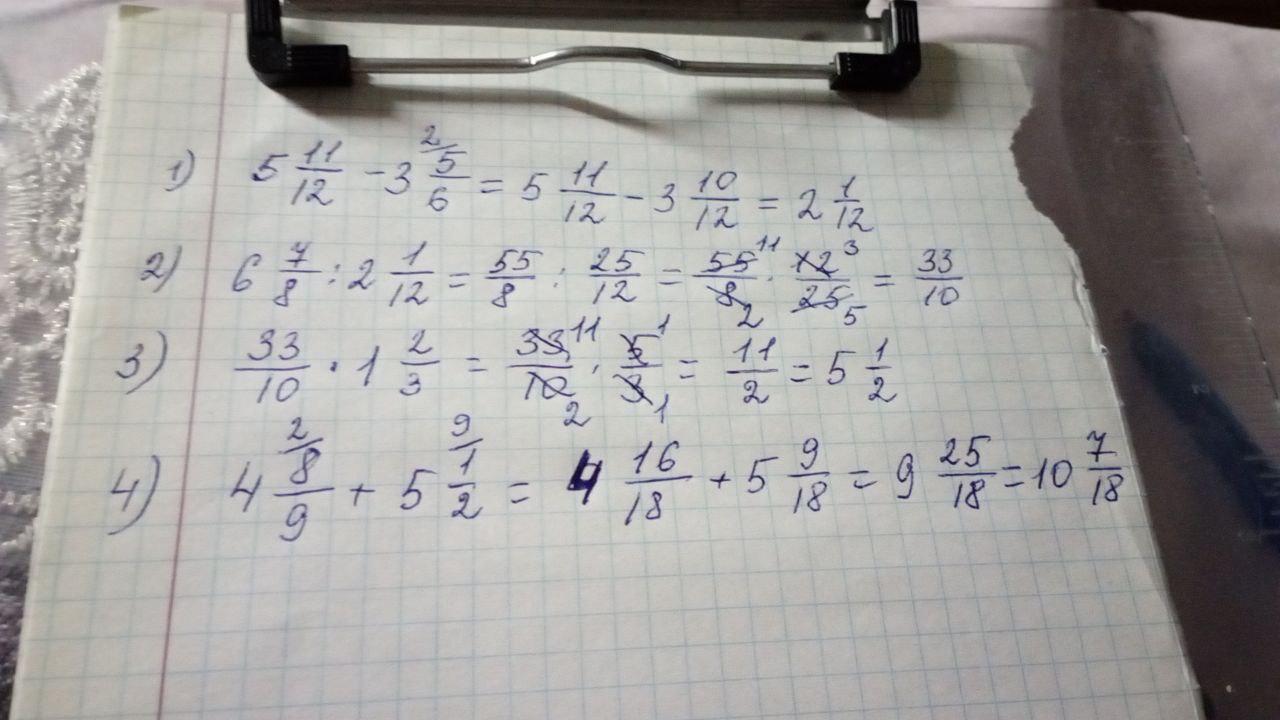 1) 5 11/12 - 3 5/6 (2/) = 5 11/12 - 3 10/12 = 2 1/12
2) 6 7/8 : 2 1/12 = 55/8 : 25/12 = 55/8 · 12/25 (11, 2, 3, 5) = 33/10
3) 33/10 · 1 2/3 = 33/10 · 5/3 (11, 2, 1, 1) = 11/2 = 5 1/2
4) 4 8/9 (2/) + 5 1/2 (9/) = 4 16/18 + 5 9/18 = 9 25/18 = 10 7/18